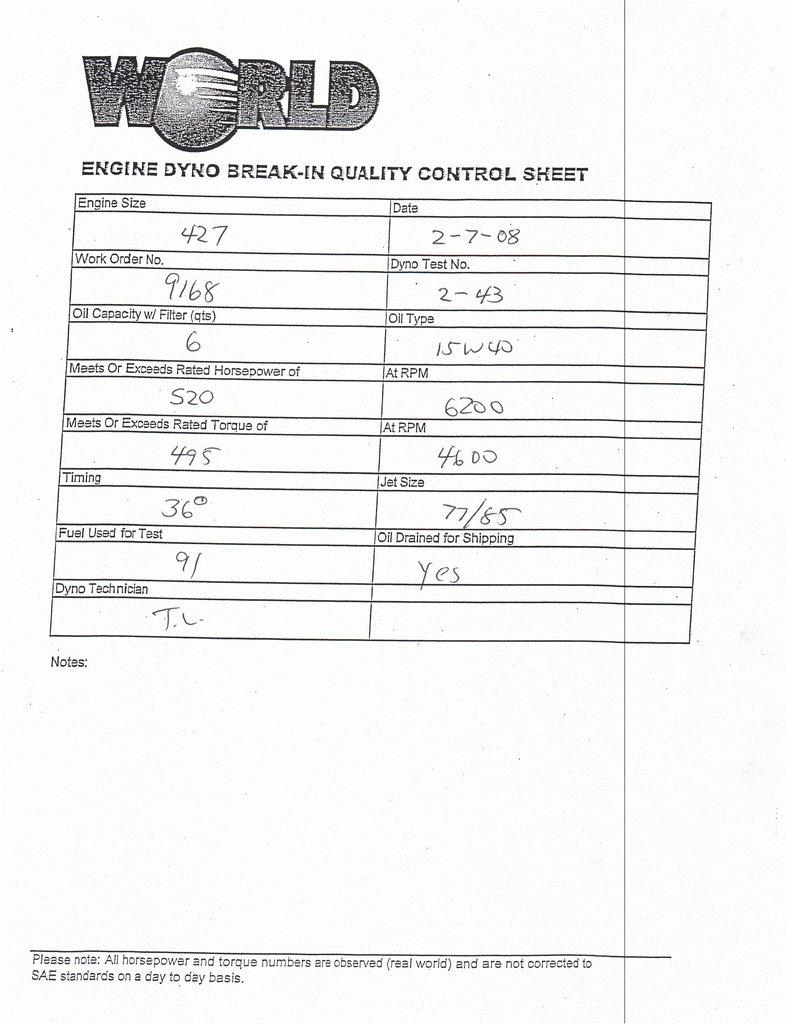 WORLD
ENGINE DYNO BREAK-IN QUALITY CONTROL SHEET
Engine Size Date
427 2-7-08
Work Order No. Dyno Test No.
9168 2-43
Oil Capacity w/ Filter (qts) Oil Type
6 15W40
Meets Or Exceeds Rated Horsepower of At RPM
520 6200
Meets Or Exceeds Rated Torque of At RPM
495 4600
Timing Jet Size
36° 77/85
Fuel Used for Test Oil Drained for Shipping
91 Yes
Dyno Technician
T.L.
Notes:
Please note: All horsepower and torque numbers are observed (real world) and are not corrected to
SAE standards on a day to day basis.